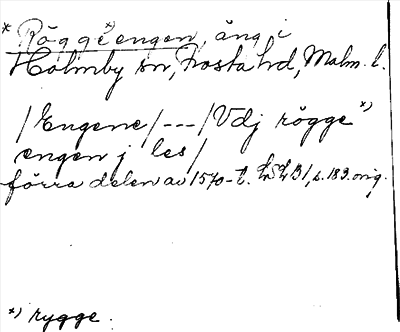 * Rögge*)engen, äng i
Holmby sn, Frosta hd, Malm. l.
/Engene/---/Vdj rögge*)
engen j les/
förra delen av 1570-t. LSLB1, s. 183. orig.
*) rygge.